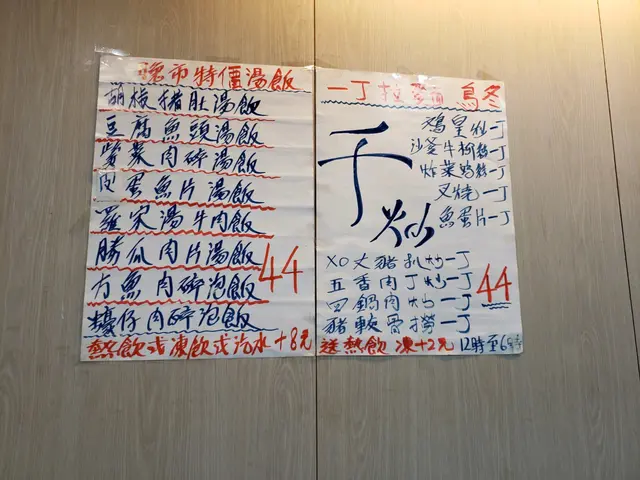 晚市特價湯飯
胡椒豬肚湯飯
豆腐魚頭湯飯
紫菜肉碎湯飯
皮蛋魚片湯飯
羅宋湯牛肉飯
勝瓜肉片湯飯
方魚肉碎泡飯
蠔仔肉碎泡飯
44
熱飲或凍飲或汽水+8元
一丁 烏冬
干炒
鴻星炒一丁
沙爹牛柳絲一丁
炸菜鸡絲一丁
叉燒一丁
魚蛋片一丁
XO大豬扒炒一丁
五香肉丁炒一丁
回鍋肉炒一丁
豬軟骨撈一丁
44
送熱飲 凍+2元 12時至6時